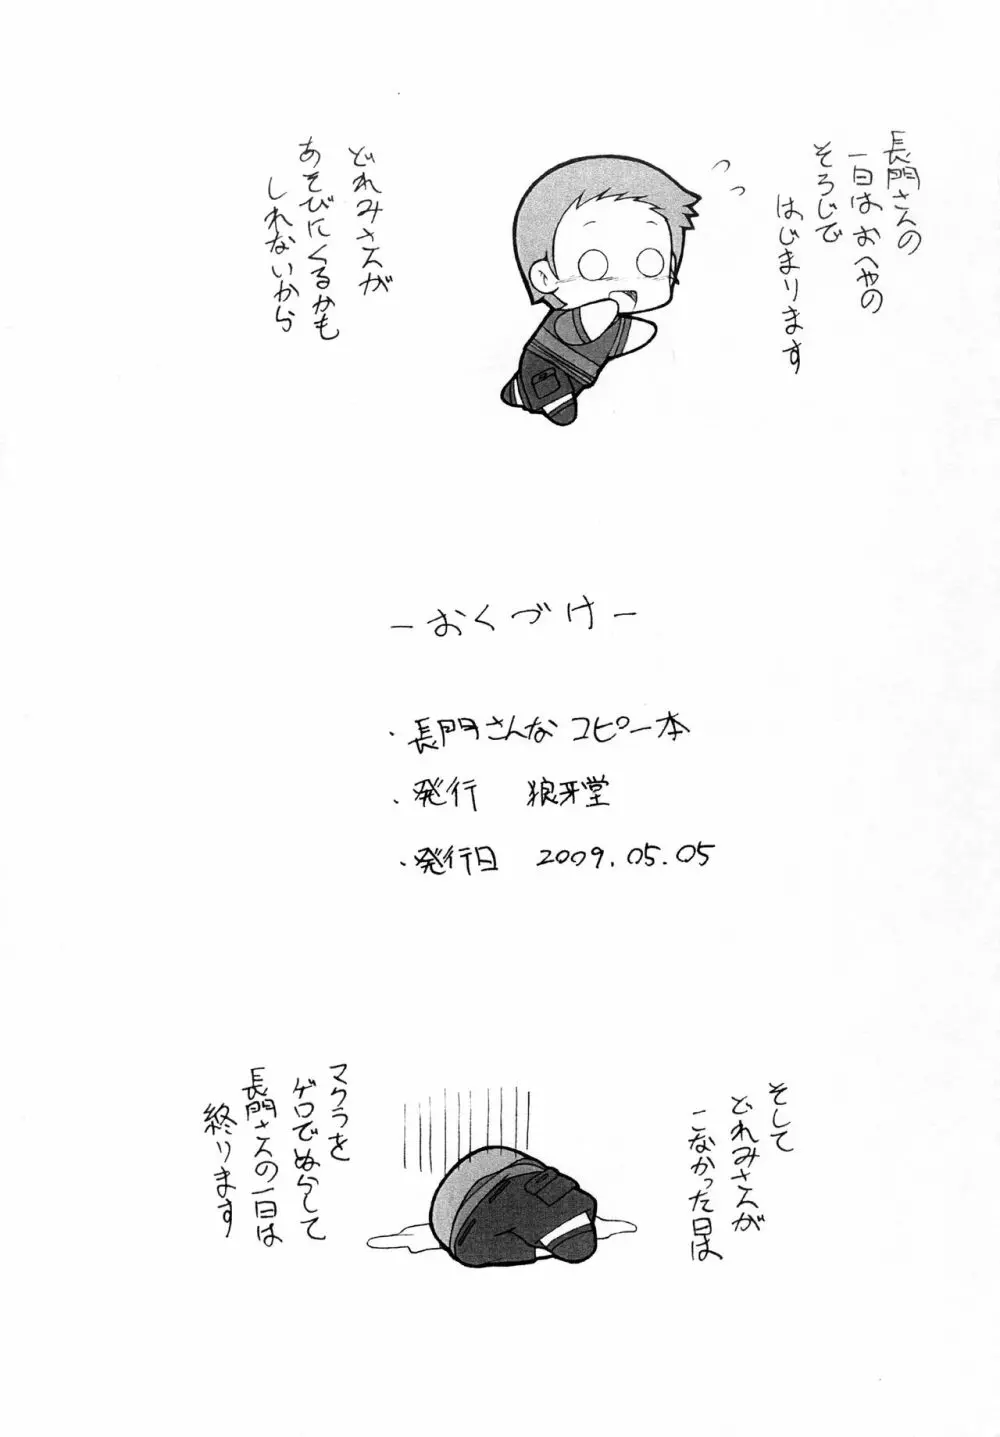 長門さんの
一日はおへやの
そろじで
はじまります
どれみさんが
あそびにくるかも
しれないから
ーおくづけー
・長門さんなコピー本
・発行 狼牙堂
・発行日 2009.05.05
そして
どれみさんが
こなかった日は
マクラを
ゲロでぬらして
長門さんの一日は
終ります